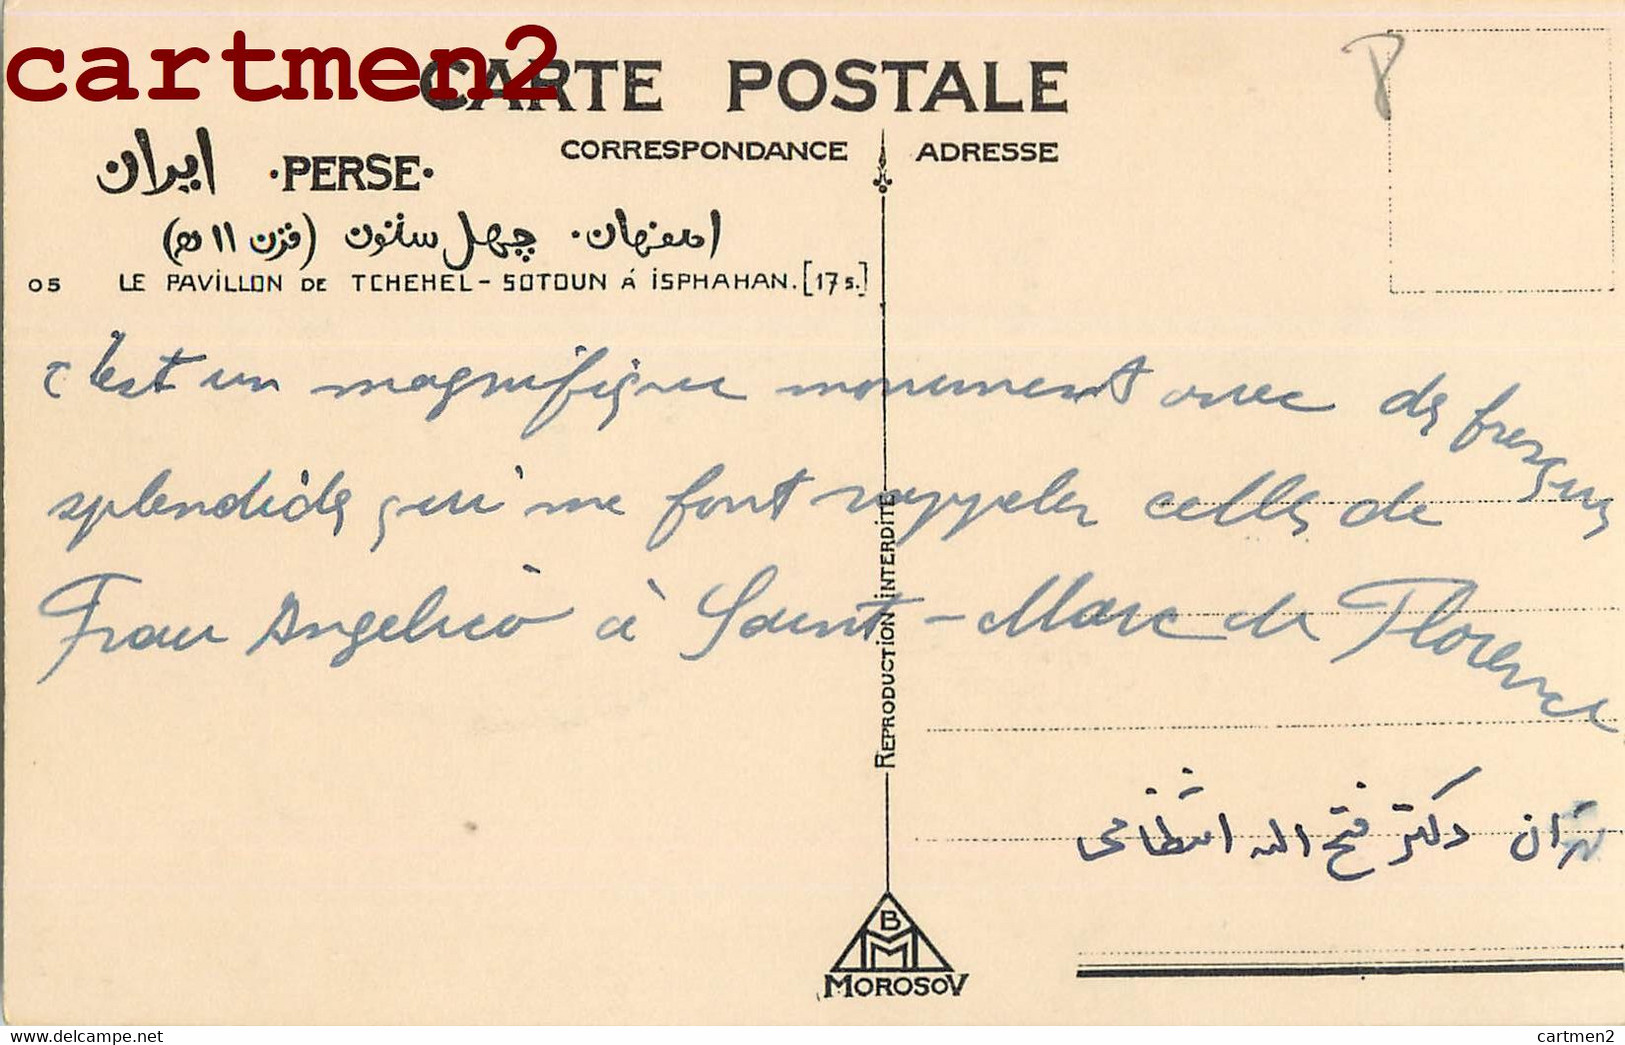 cartmen2
CARTE POSTALE
CORRESPONDANCE ADRESSE
ایران ·PERSE·
اصفهان· چهل ستون (قرن ۱۱ هم)
05 LE PAVILLON DE TCHEHEL-SOTOUN Á ISPHAHAN.[17 s.]
c'est un magnifique monument avec des fresques
splendides qui me font rappeler celles de
Frau Angelico à Saint-Marc de Florence
REPRODUCTION INTERDITE
تهران دکتر فتح اله انتظامی
BMM
MOROSOV
delcampe.net
cartmen2